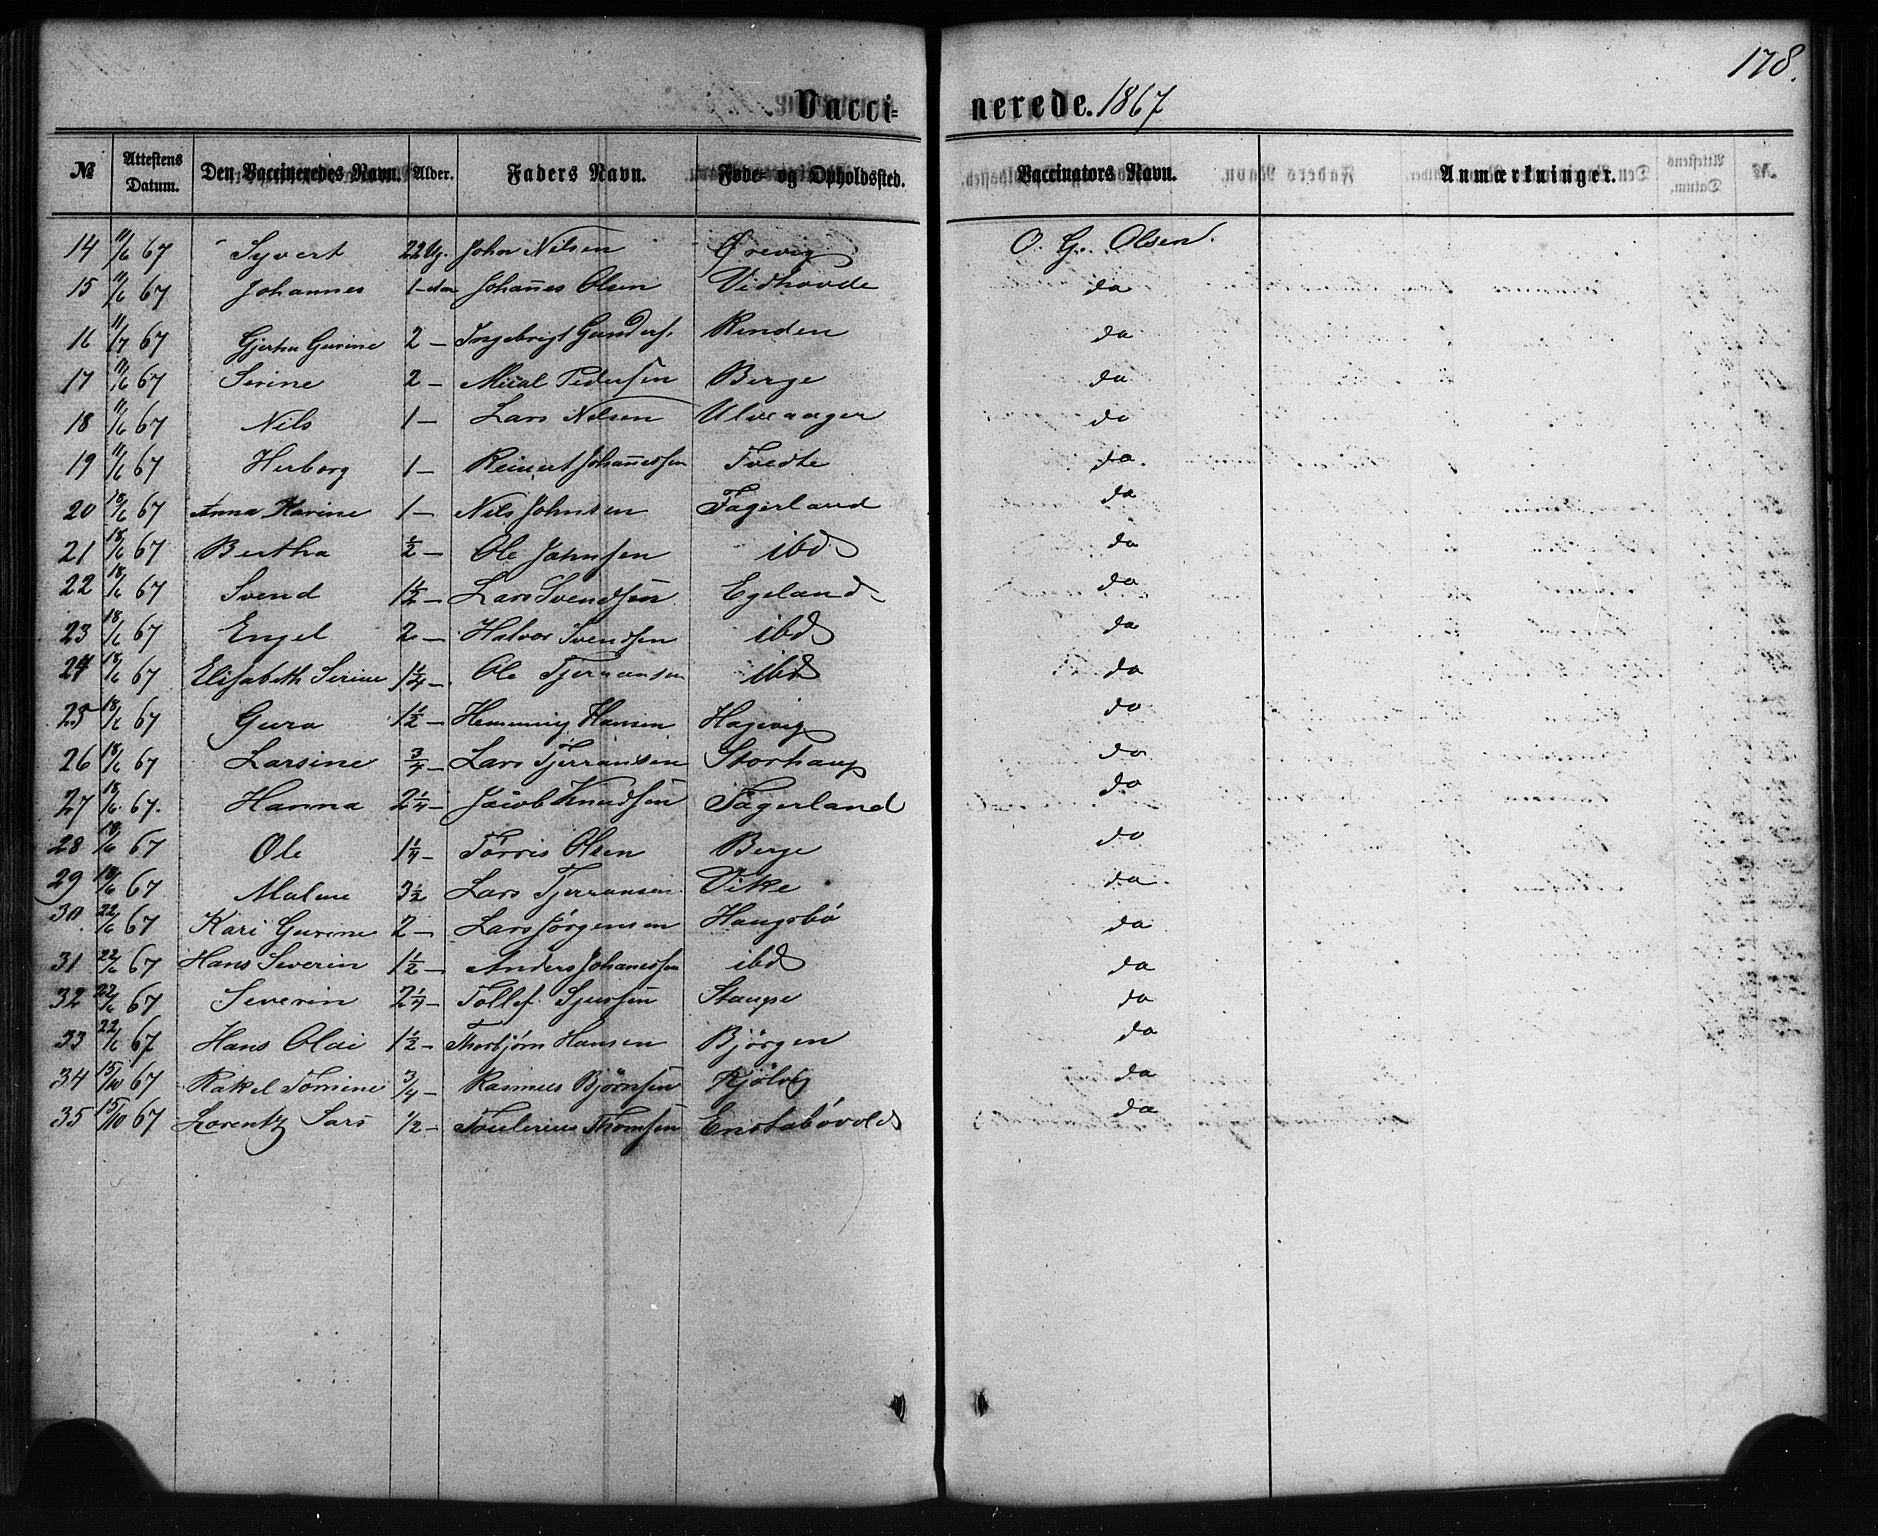 178.
Vacci-nerede. 1867
№ Attestens Datum. Den Vaccineredes Navn. Alder. Faders Navn. Føde- og Opholdssted. Vaccinators Navn. Anmærkninger.
14 11/6 67 Syvert 22 John Nilsen Ørevig O. G. Olsen.
15 11/6 67 Johannes 1 Johañes Olsen Vidhovde do
16 11/7 67 Gjertru Gurine 2 – Ingebrigt Gunders. Rinden do
17 11/6 67 Serine 2 – Mical Pedersen Berge do
18 11/6 67 Nils 1 – Lars Nilsen Ulveaager do
19 11/6 67 Herborg 1 – Reinert Johañessen Tvedte do.
20 18/6 67 Anna Karine 1 – Nils Johnsen Fagerland do
21 18/6 67 Bertha ½ – Ole Johnsen ibd do
22 18/6 67 Svend 1½ – Lars Svendsen Egeland do
23 18/6 67 Engel 2 – Halvor Svendsen ibd do
24 18/6 67 Elisabeth Serine 1¼ – Ole Tjerransen ibd do
25 18/6 67 Gura 1½ – Hemming Hansen Hagevig do
26 18/6 67 Larsine ¾ – Lars Tjerransen Storhaug do
27 18/6 67. Hanna 2¼ – Jacob Knudsen Fagerland do
28 18/6 67 Ole 1¼ – Tørris Olsen Berge do
29 18/6 67 Malene 3½ Lars Tjerransen Vike do
30 22/6 67 Kari Gurine 2 – Lars Jørgensen Haugsbø do
31 22/6 67 Hans Severin 1½ – Anders Johanessen ibd do
32 22/6 67 Severin 2¼ – Tollef Sjursen Staupe do
33 22/6 67 Hans Olai 1½ – Thorbjørn Hansen Bjørgen do
34 15/10 67 Rakel Tomine ¾ – Rasmus Bjørnsen Kjølvig do
35 15/10 67 Lorentz Lars ½ – Thomsen do